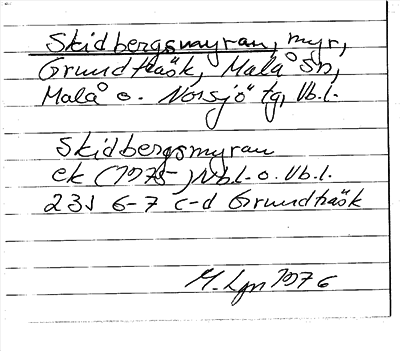 Skidbergsmyran, myr,
Grundträsk, Malå sn,
Malå o. Norsjö tg, Vb.l.
Skidbergsmyran
ek (1975-) Nb.l. o. Vb.l.
23J 6-7 c-d Grundträsk
M. Lgn 1976